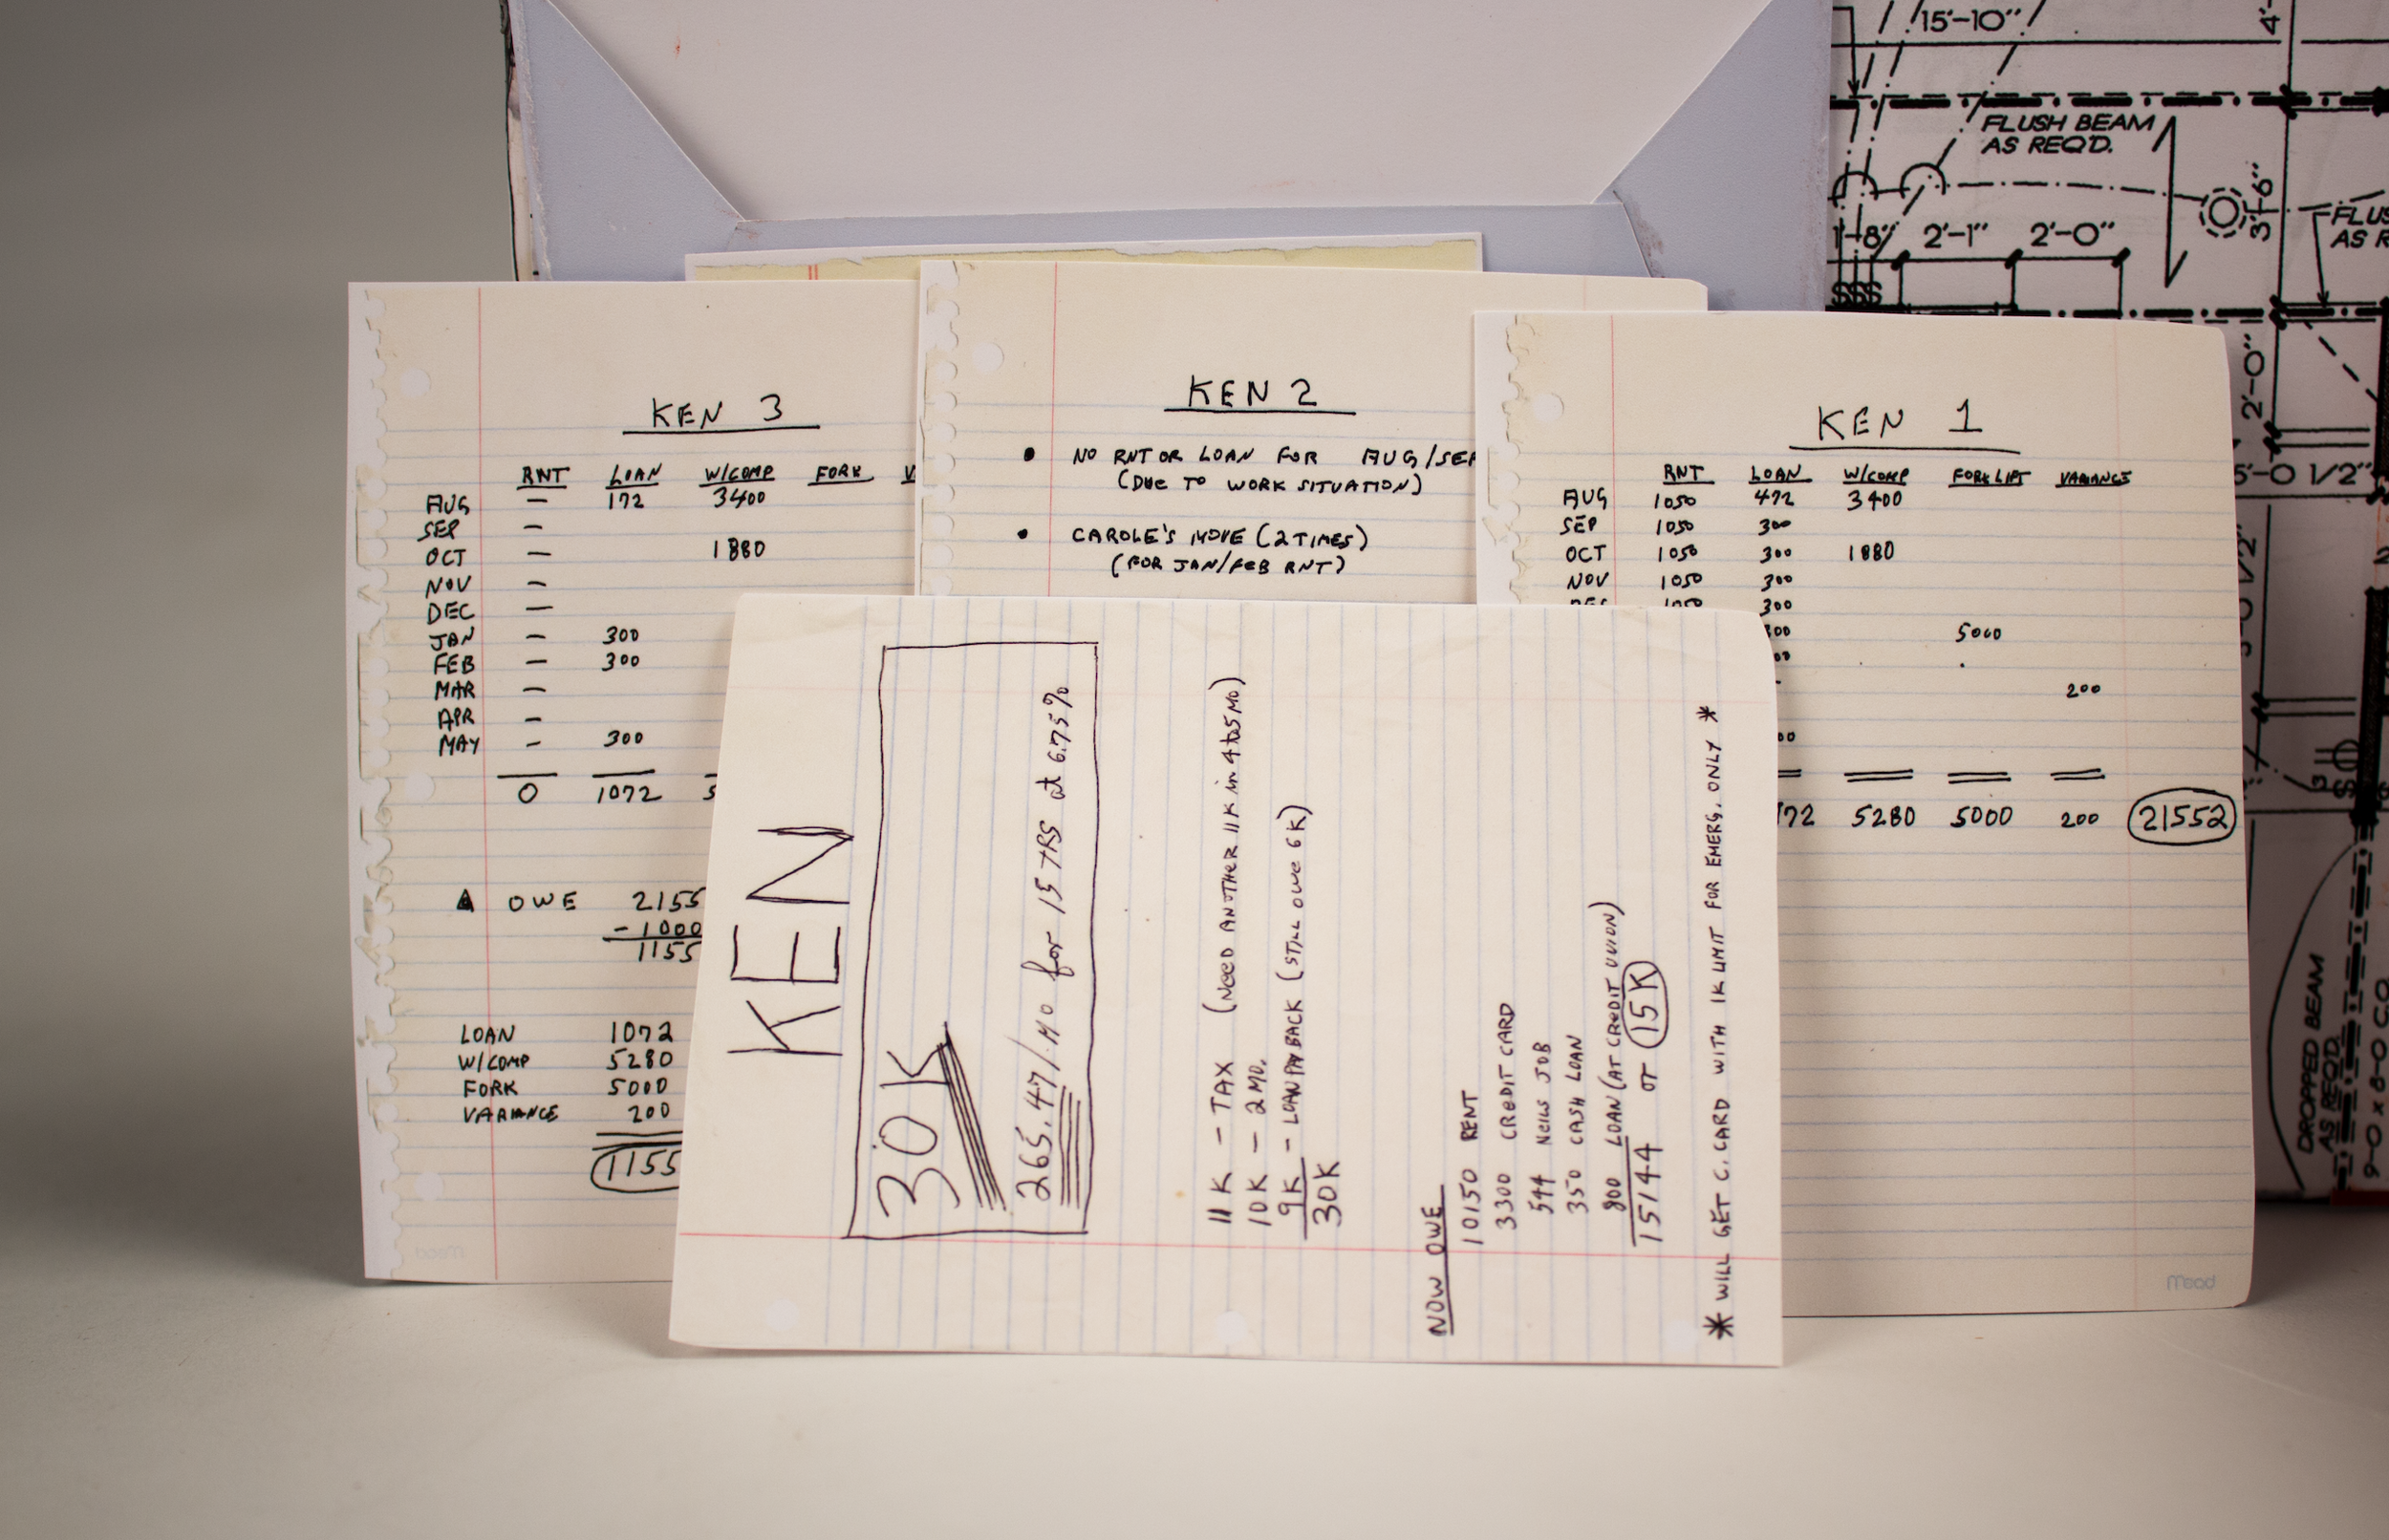 KEN 3
RNT LOAN W/COMP FORK
AUG — 172 3400
SEP —
OCT — 1880
NOV —
DEC —
JAN — 300
FEB — 300
MAR —
APR —
MAY — 300
0 1072
OWE 2155
-1000
1155
LOAN 1072
W/COMP 5280
FORK 5000
VARIANCE 200
1155
Mead
KEN 2
• NO RNT OR LOAN FOR AUG/SEP
(DUE TO WORK SITUATION)
• CAROLE'S MOVE (2 TIMES)
(FOR JAN/FEB RNT)
KEN 1
RNT LOAN W/COMP FORKLIFT VARIANCE
AUG 1050 472 3400
SEP 1050 300
OCT 1050 300 1880
NOV 1050 300
DEC 1050 300
300 5000
200
72 5280 5000 200 21552
Mead
KEN
30K
265.47/MO for 15 YRS at 6.75%
11K - TAX (NEED ANOTHER 11K in 4 to 5 MO)
10K - 2 MO.
9K - LOAN PAY BACK (STILL OWE 6K)
30K
NOW OWE
10150 RENT
3300 CREDIT CARD
544 NEILS JOB
350 CASH LOAN
800 LOAN (AT CREDIT UNION)
15144 or 15K
* WILL GET C. CARD WITH 1K LIMIT FOR EMERG. ONLY *
15'-10"
4'-
FLUSH BEAM
AS REQ'D.
3'-6"
2'-1" 2'-0"
FLUS
AS R
SSS
2'-0"
5'-0 1/2"
DROPPED BEAM
AS REQ'D.
9-0 x 8-0 C.O.